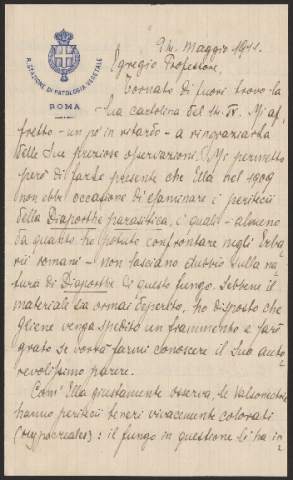 R. STAZIONE DI PATOLOGIA VEGETALE
ROMA
Maggio 1911.
Egregio Professore,
Tornato di fuori trovo la
Sua cartolina del 14. IV. Mi af„
fretto - un po' in ritardo - a ringraziarla
delle Sue preziose osservazioni. Mi permetto
però di farle presente che Ella nel 1909
non ebbe occasione di esaminare i periteci
della Diaporthe parasitica, i quali - almeno
da quanto ho potuto confrontare negli Erba„
rii romani - non lasciano dubbio sulla na„
tura di Diaporthe di questo fungo. Sebbene il
materiale sia ormai deperito, ho disposto che
gliene venga spedito un frammento e sarò
grato se vorrà farmi conoscere il Suo auto„
revolissimo parere.
Com' Ella giustamente osserva, le Valsonectrie
hanno periteci teneri vivacemente colorati
(Hypocreales): il fungo in questione li ha in„